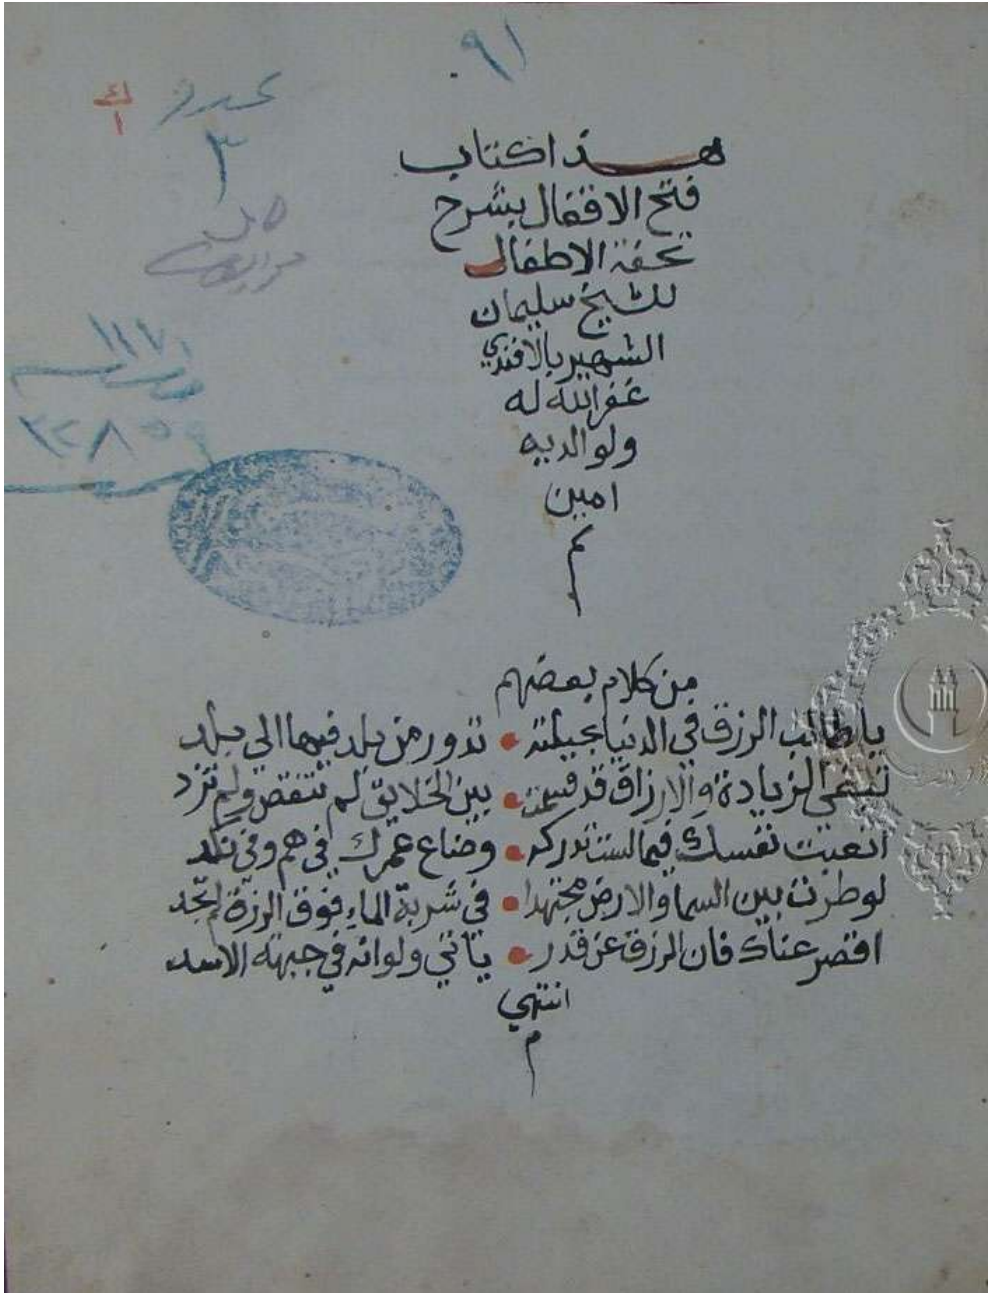 ٩١
٣
هذا كتاب
فتح الاقفال بشرح
تحفة الاطفال
للشيخ سليمان
الشهير بالافندي
غفر الله له
ولوالديه
امين
م
من كلام بعضهم
يا طالب الرزق في الدنيا بحيلته • تدور من بلد فيها الى بلد
تبتغي الزيادة والارزاق قد قسمت • بين الخلايق لم تنقص ولم تزد
اتعبت نفسك فيما لست تدركه • وضاع عمرك في هم وفي نكد
لو طرت بين السما والارض مجتهدا • في شربة الماء فوق الرزق لم تجد
اقصر عناك فان الرزق عن قدر • ياتي ولو انه في جبهة الاسد
انتهي
م